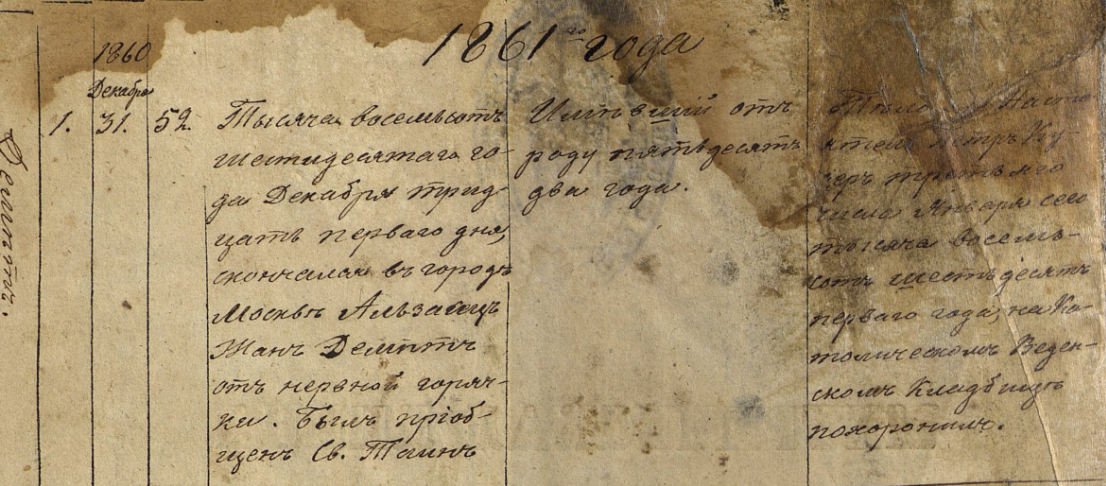 1861го года
1860
Декабря
1. 31. 52.
Демптъ.
Тысяча восемьсотъ
шестидесятаго го-
да Декабря трид-
цать перваго дня,
скончался въ городѣ
Москвѣ Альзасецъ
Жанъ Демптъ
отъ нервной горяч-
ки. Былъ пріоб-
щенъ Св. Таинъ
Имѣвшій отъ
роду пятьдесятъ
два года.
Тѣло его Насто-
ятель Петръ Ку-
черъ третьяго
числа Января сего
тысяча восемь-
сотъ шестьдесятъ
перваго года, на Ка-
толическомъ Веден-
скомъ Кладбищѣ
похоронилъ.